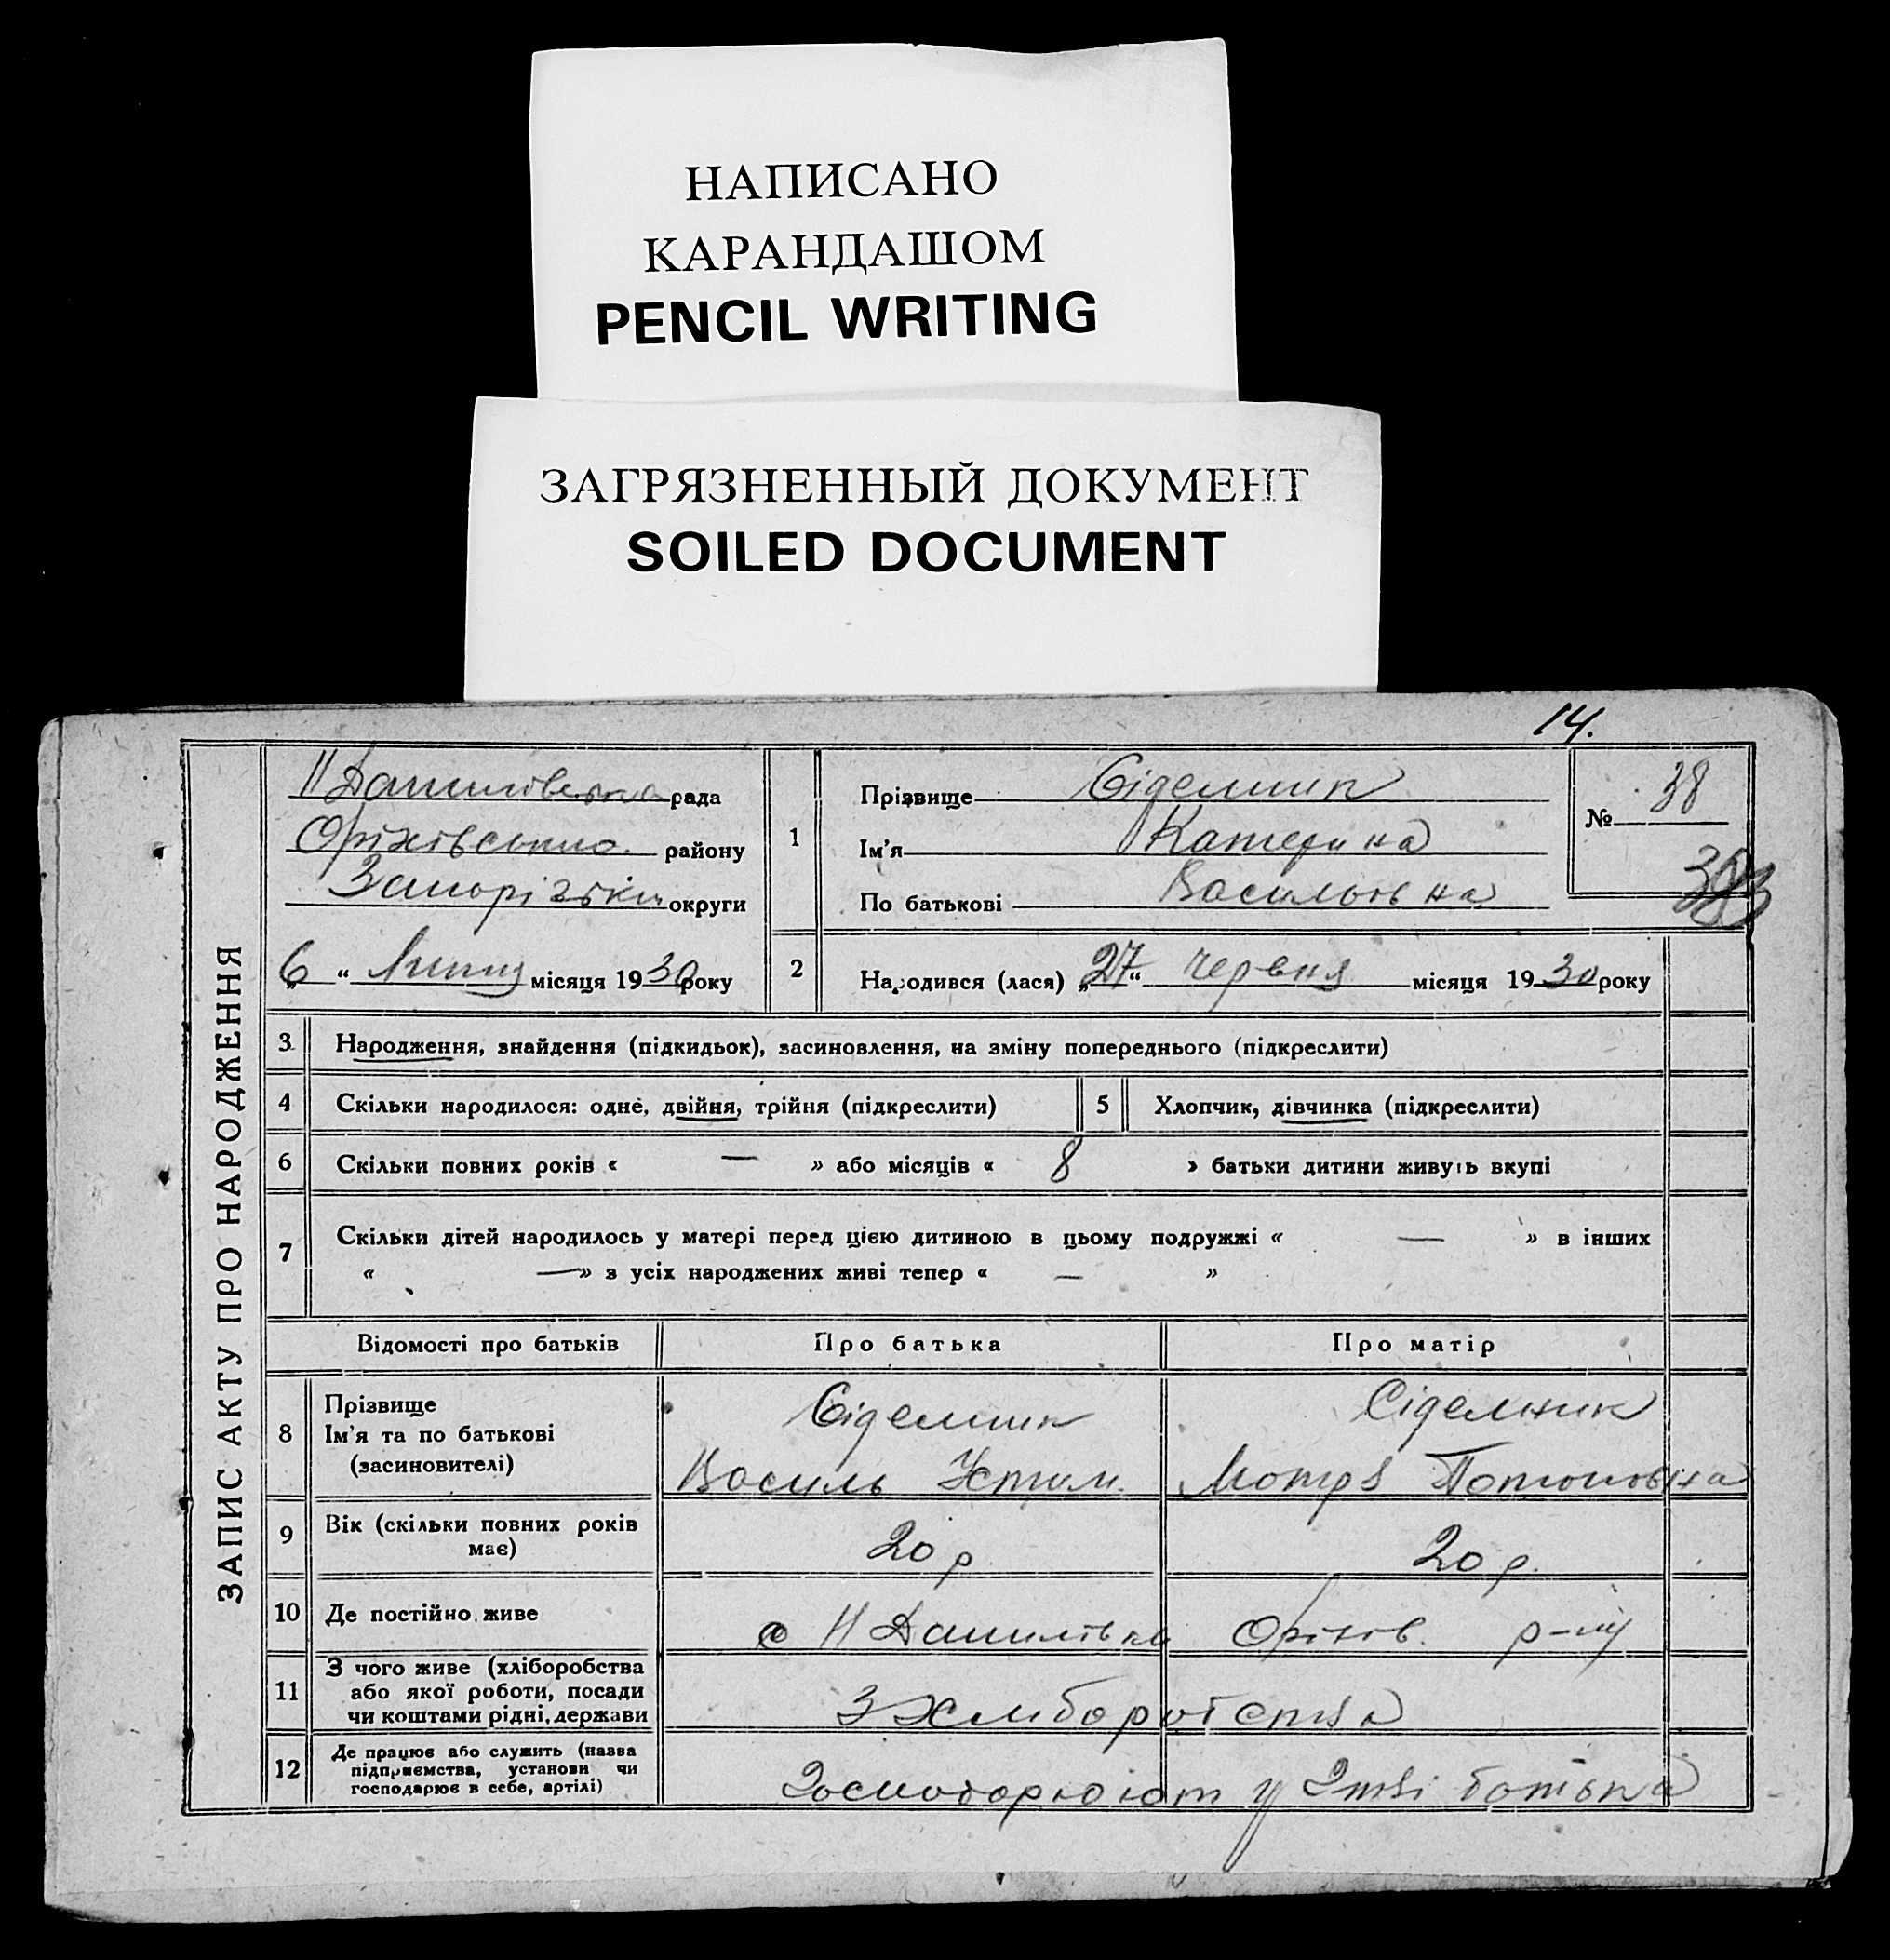 НАПИСАНО
КАРАНДАШОМ
PENCIL WRITING
ЗАГРЯЗНЕННЫЙ ДОКУМЕНТ
SOILED DOCUMENT
14.
ЗАПИС АКТУ ПРО НАРОДЖЕННЯ
Н Данилівська рада
Оріхівського району
Запорізької округи
„6“ Липня місяця 1930 року
1
Прізвище Сідельник
Ім'я Катерина
По батькові Васильовна
№ 38
2 Народився (лася) „27“ червня місяця 1930 року
3 Народження, знайдення (підкидьок), засиновлення, на зміну попереднього (підкреслити)
4 Скільки народилося: одне, двійня, трійня (підкреслити) 5 Хлопчик, дівчинка (підкреслити)
6 Скільки повних років « — » або місяців « 8 » батьки дитини живуть вкупі
7 Скільки дітей народилось у матері перед цією дитиною в цьому подружжі « — » в інших
« — » з усіх народжених живі тепер « — »
Відомості про батьків Про батька Про матір
8 Прізвище Сідельник Сідельник
Ім'я та по батькові
(засиновителі) Василь Устим. Мотря
9 Вік (скільки повних років має) 20 р. 20 р.
10 Де постійно живе с Н Данилівка Оріхів. р-ну
11 З чого живе (хліборобства
або якої роботи, посади
чи коштами рідні, держави З хліборобства
12 Де працює або служить (назва
підприємства, установи чи
господарює в себе, артілі) Господарюют у батька